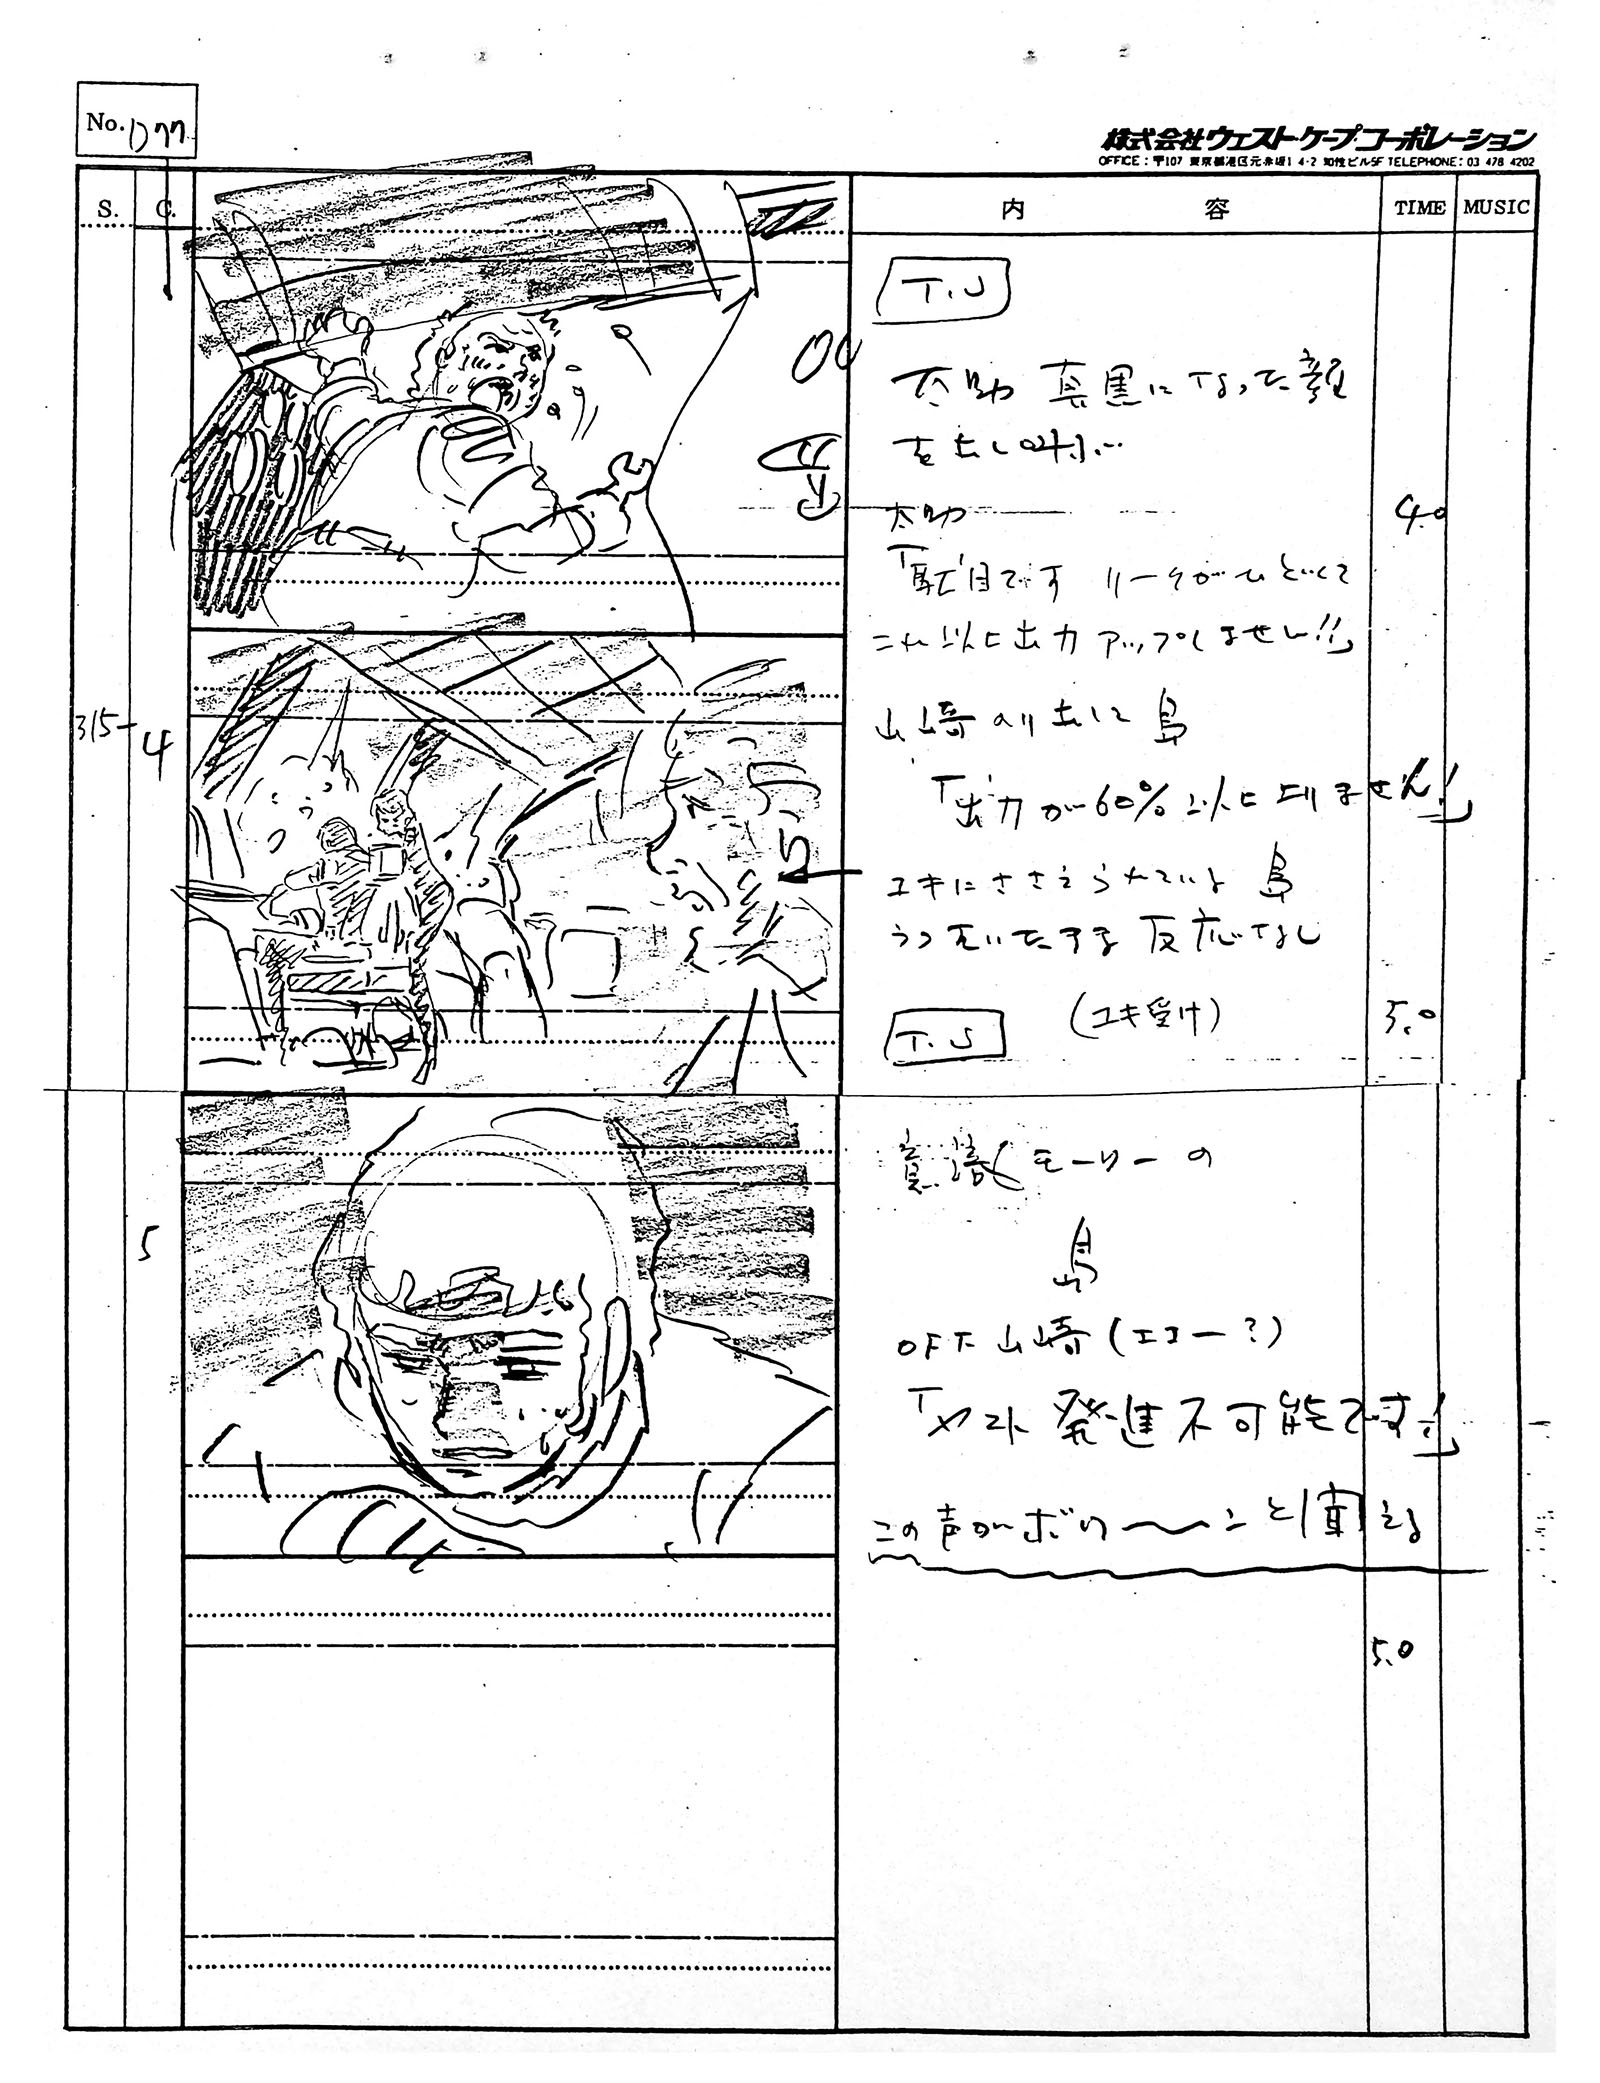 No. D77
株式会社ウエスト・ケープ・コーポレーション
OFFICE：〒107 東京都港区元赤坂1 4-2 知性ビル5F TELEPHONE：03 478 4202
S. C. 内 容 TIME MUSIC
T.U
太助 真黒になった顔
を出し叫ぶ…
太助 4.0
「駄目です リークがひどくて
これ以上出力アップしません!!」
315- 4
山崎のり出して 島
「出力が60%以上上りません!」
ユキにささえられている 島
うつむいたまま 反応なし
T.U (ユキ受け) 5.0
5
意識モーローの
島
OFF 山崎(エコー?)
「ヤマト 発進不可能です!」
この声がボワ〜〜ンと聞える
5.0